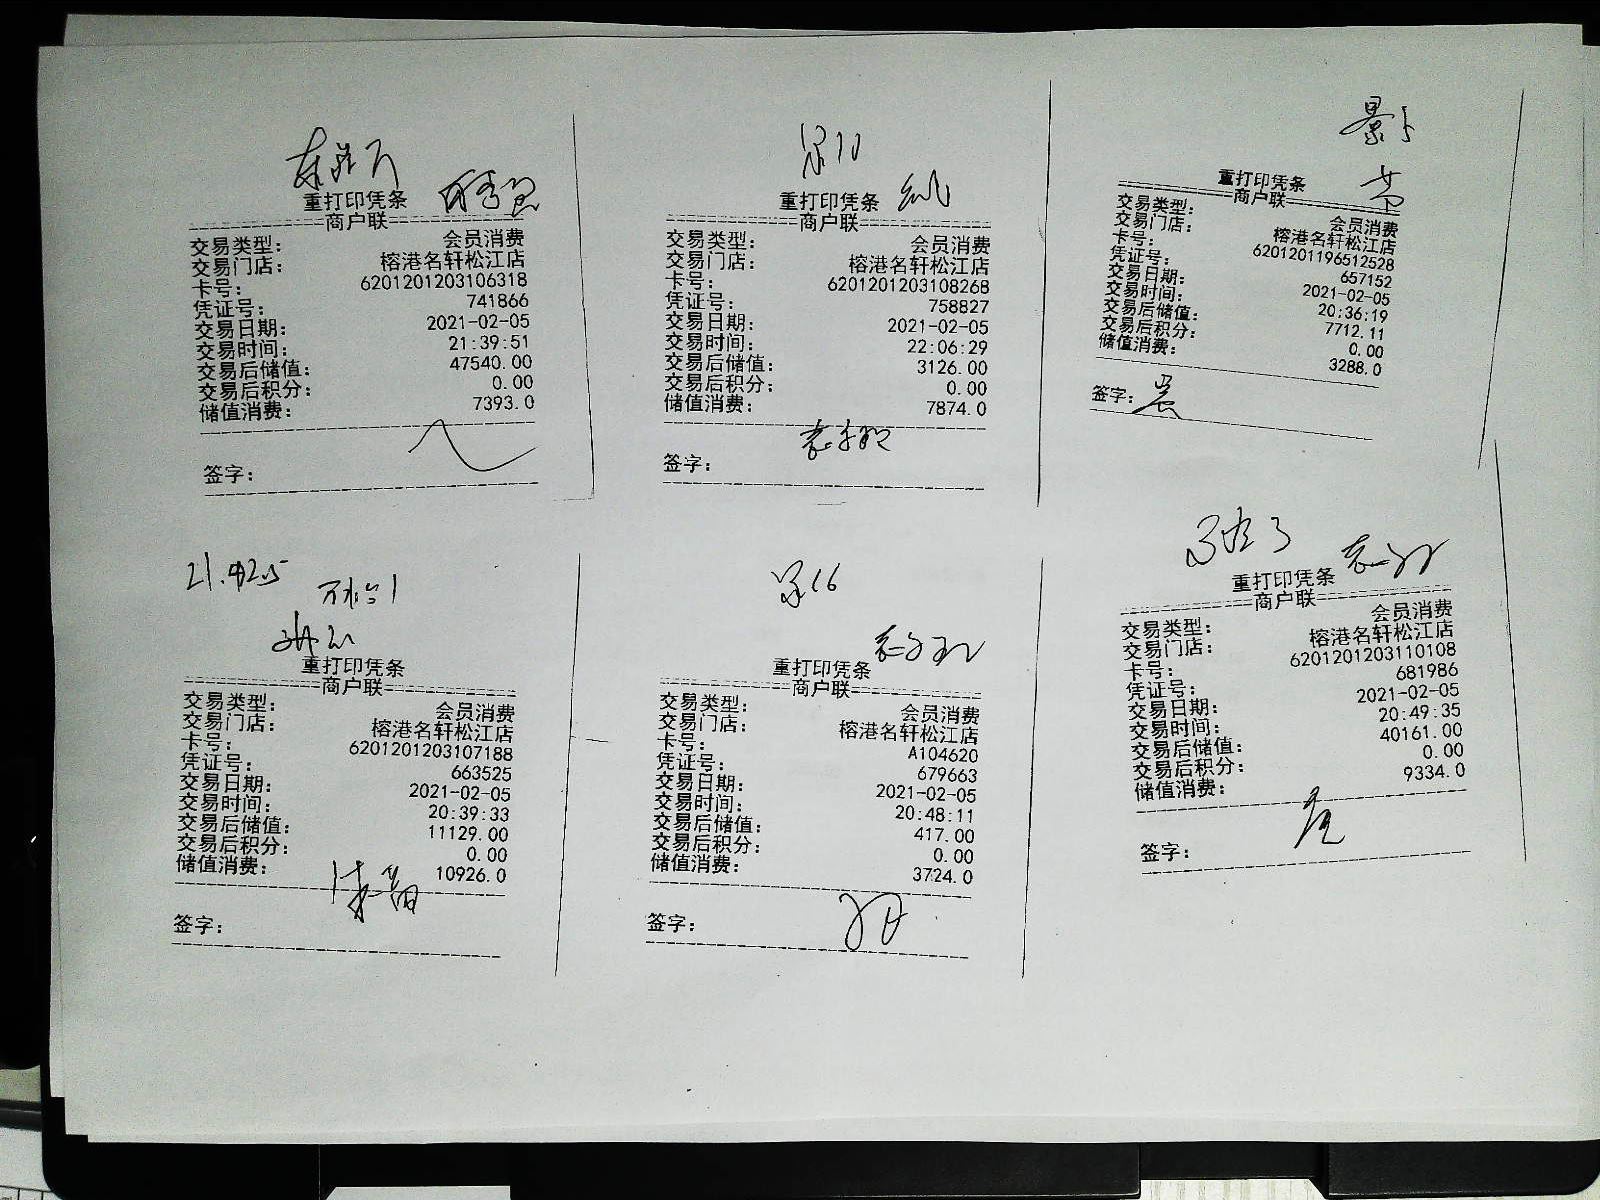 重打印凭条
商户联
交易类型： 会员消费
交易门店： 榕港名轩松江店
卡号： 6201201203106318
凭证号： 741866
交易日期： 2021-02-05
交易时间： 21:39:51
交易后储值： 47540.00
交易后积分： 0.00
储值消费： 7393.0
签字：
重打印凭条
商户联
交易类型： 会员消费
交易门店： 榕港名轩松江店
卡号： 6201201203108268
凭证号： 758827
交易日期： 2021-02-05
交易时间： 22:06:29
交易后储值： 3126.00
交易后积分： 0.00
储值消费： 7874.0
签字：
重打印凭条
商户联
交易类型： 会员消费
交易门店： 榕港名轩松江店
卡号： 6201201196512528
凭证号： 657152
交易日期： 2021-02-05
交易时间： 20:36:19
交易后储值： 7712.11
交易后积分： 0.00
储值消费： 3288.0
签字：
重打印凭条
商户联
交易类型： 会员消费
交易门店： 榕港名轩松江店
卡号： 6201201203107188
凭证号： 663525
交易日期： 2021-02-05
交易时间： 20:39:33
交易后储值： 11129.00
交易后积分： 0.00
储值消费： 10926.0
签字：
重打印凭条
商户联
交易类型： 会员消费
交易门店： 榕港名轩松江店
卡号： A104620
凭证号： 679663
交易日期： 2021-02-05
交易时间： 20:48:11
交易后储值： 417.00
交易后积分： 0.00
储值消费： 3724.0
签字：
重打印凭条
商户联
交易类型： 会员消费
交易门店： 榕港名轩松江店
卡号： 6201201203110108
凭证号： 681986
交易日期： 2021-02-05
交易时间： 20:49:35
交易后储值： 40161.00
交易后积分： 0.00
储值消费： 9334.0
签字：